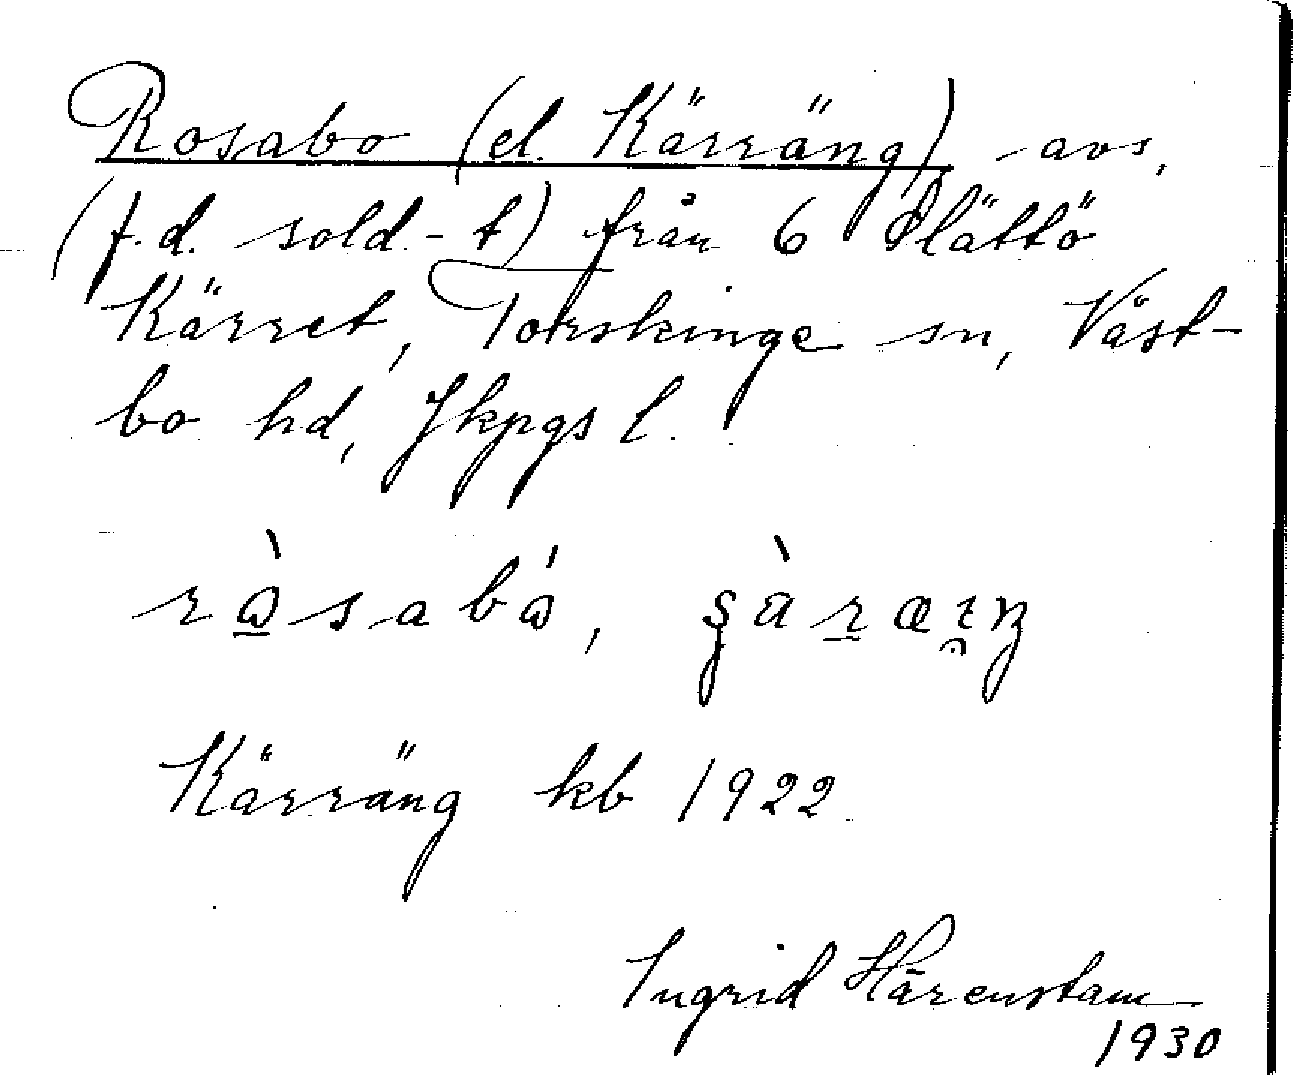 Rosabo (el. Kärräng) - avs.
(f.d. sold.-t) från 6 Slättö
Kärret, Torskinge sn, Väst-
bo hd, Jkpgs l.
Kärräng kb 1922
Ingrid Härenstam
1930